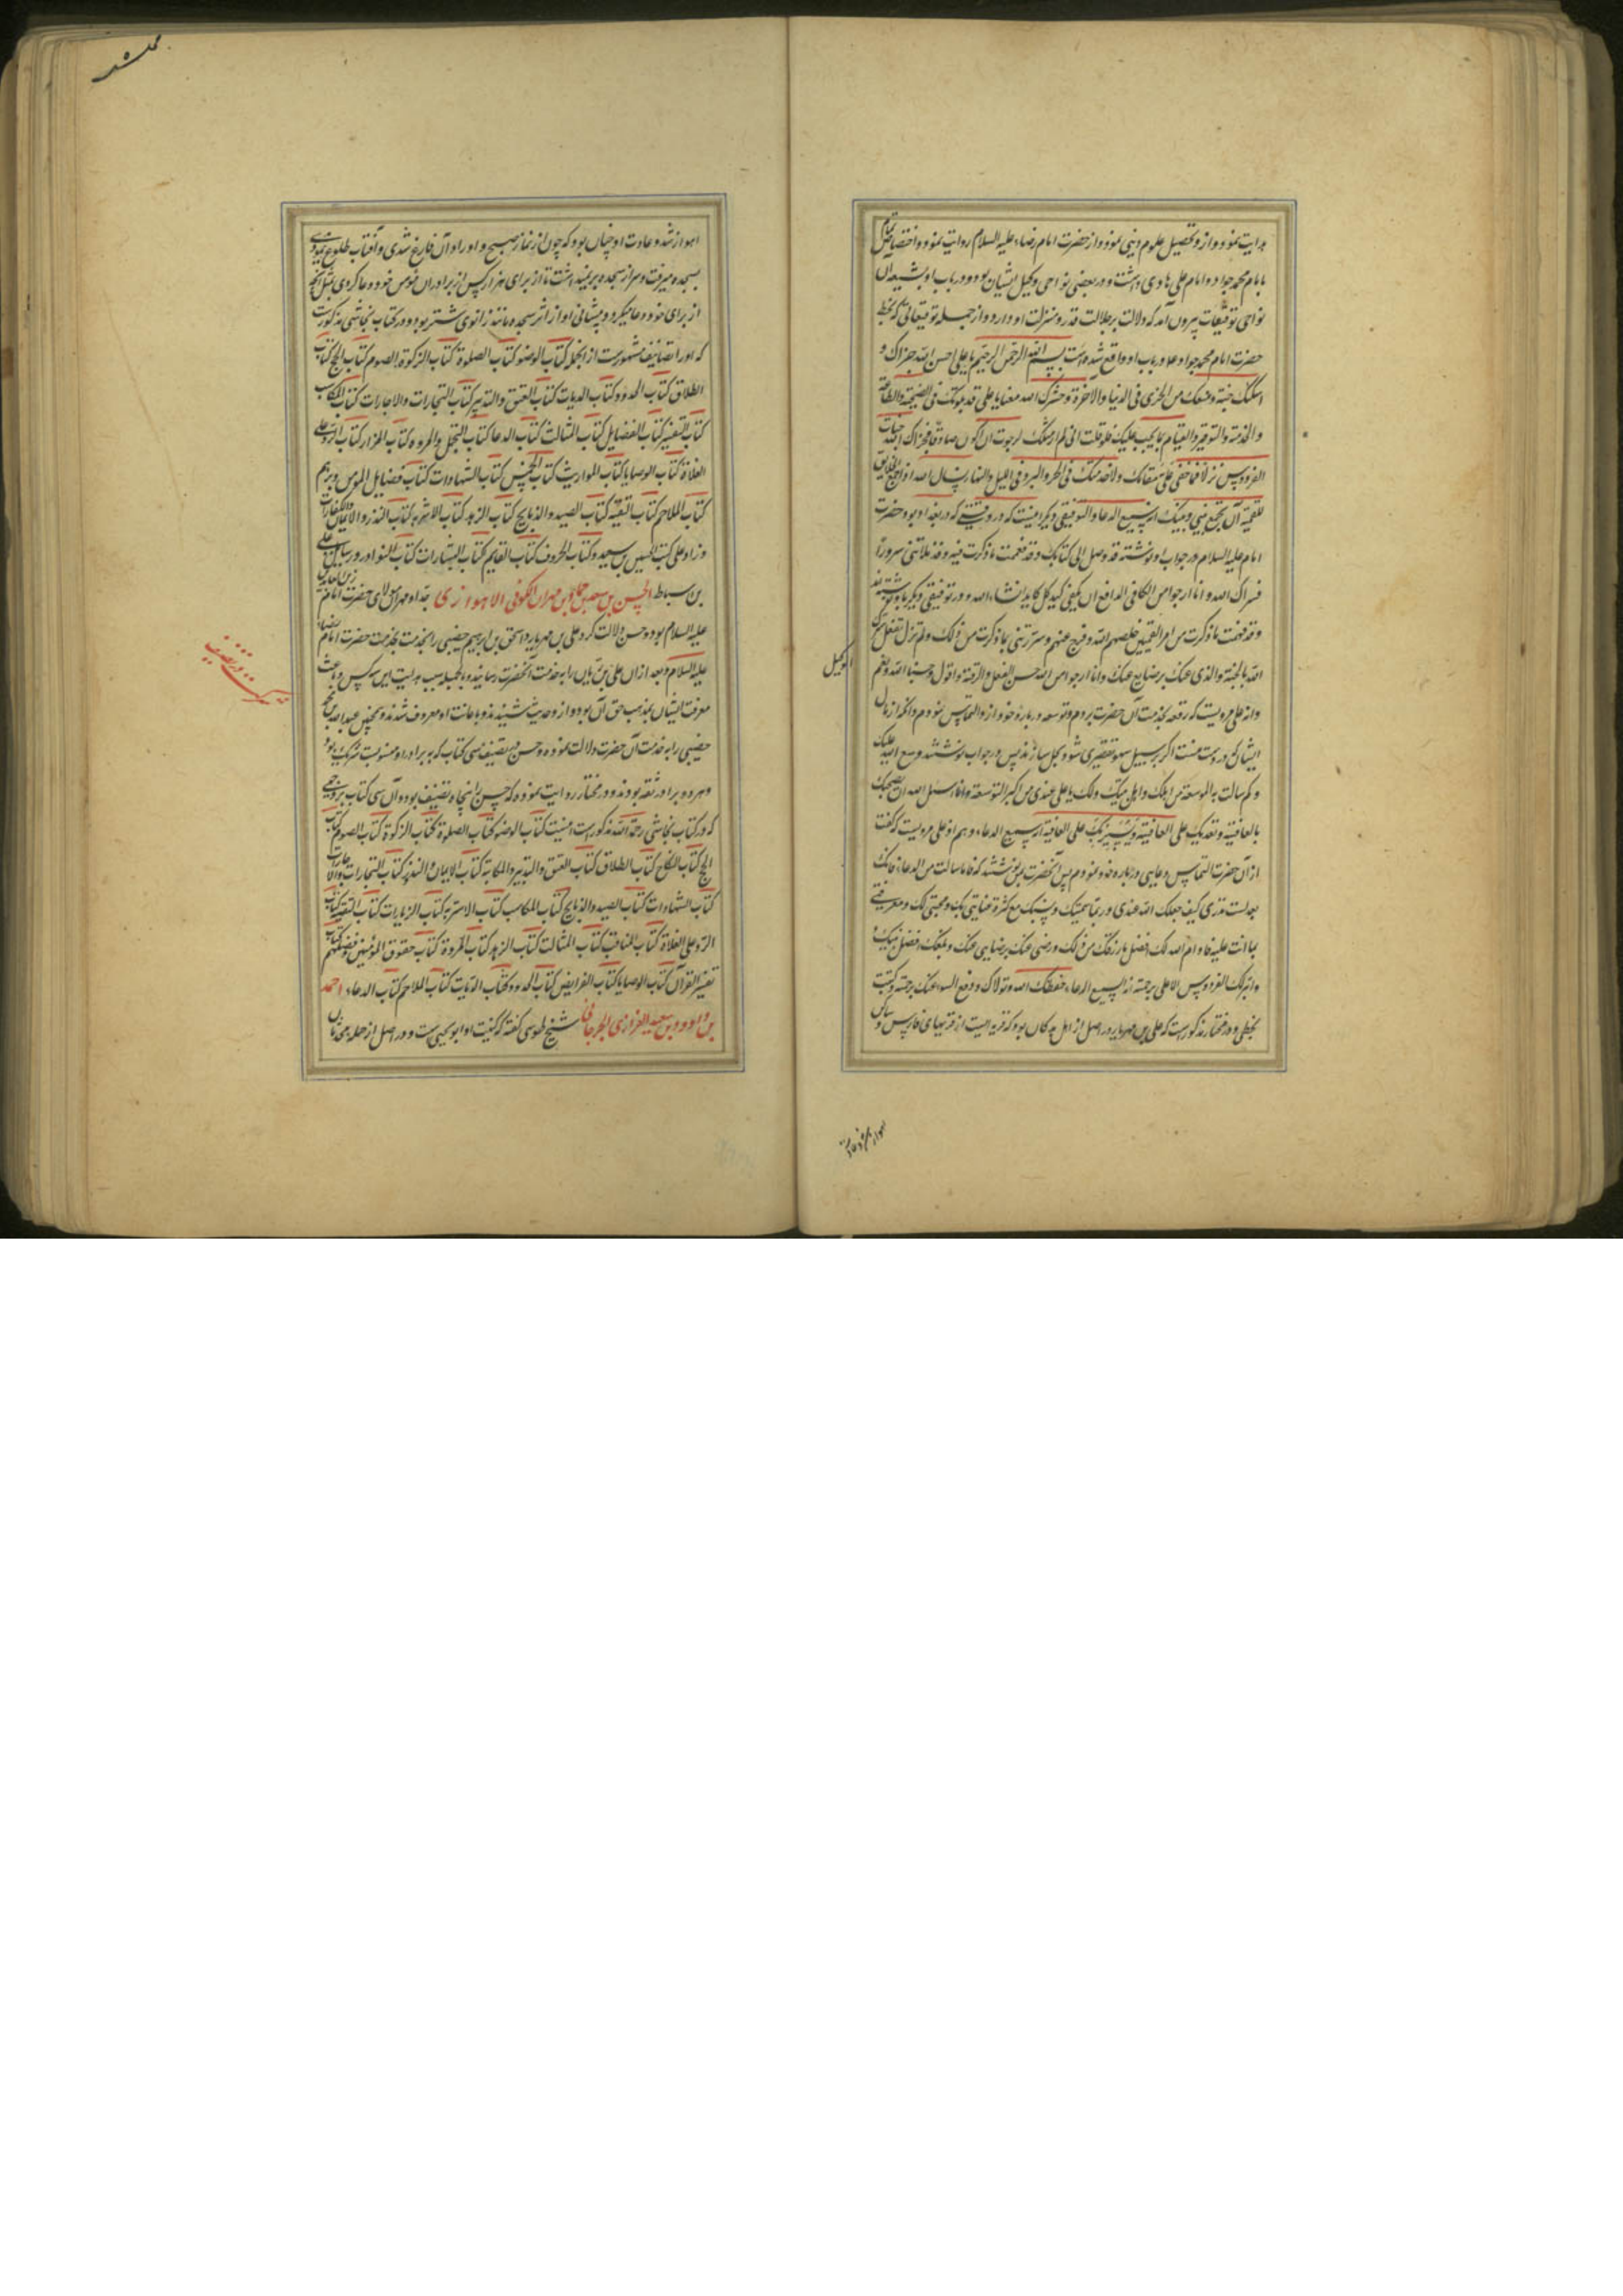 هدایت نمود و از و تحصیل علوم دینی نمود و از حضرت امام رضاء علیه السلام روایت نمود و اختصاص تمام
با امام محمد جواد و امام علی هادی داشت و در بعضی نواحی وکیل ایشان بود و در باب او بشیعه آن
نواحی توقیعات بیرون آمد که دلالت بر جلالت قدر و منزلت او دارد و از جمله توقیعاتی که بخط
حضرت امام محمد جواد ع در باب او واقع شده است بسم الله الرحمن الرحیم یا علی احسن الله جزاک و
اسکنک جنته و منعک من الخزی فی الدنیا والآخرة و حشرک الله معنا یا علی قد بلوتک فی النصیحة والطاعة
والخدمة والتوقیر والقیام بما یجب علیک فلو قلت انی لم ار مثلک لرجوت ان اکون صادقا فجزاک الله جنات
الفردوس نزلا فما خفی علی مقامک ولا خدمتک فی الحر والبرد فی اللیل والنهار اسال الله اذا جمع الخلایق
للقیمة آن یجمع بینی و بینک انه سمیع الدعا و التوقیعی دیگر اینست که در وقتیکه در بغداد بود حضرت
امام علیه السلام در جواب او نوشته قد وصل الی کتابک و قد فهمت ما ذکرت فیه و قد ملأتنی سرورا
فسرک الله و انا ارجو من الکافی الدافع ان یکفی کید کل کاید انشاء الله و در توقیعی دیگر باو نوشته اند
و قد فهمت ما ذکرت من امر القمیین خلصهم الله و فرج عنهم و سررتنی بما ذکرت من ذلک و لم تزل تفعل سرک
الله بالجنة و الذی عنک برضایع عنک و انا ارجو من الله حسن الفعل و الرأفة و اقول حسبنا الله و نعم
الوکیل
و انه علی مرویست که رقعه بخدمت آن حضرت بردم و توسعه در باره خود از و التماس نمودم و آنکه از مال
ایشان که در دست منست اگر بر سبیل سهو تقصیری شود بحل سازند پس در جواب نوشتند وسع الله علیک
و لمن سالت به التوسعة من اهلک و اهل بیتک و لک یا علی عندی من اکبر التوسعة و انا اسئل الله ان یصحبک
بالعافیة و یقدمک علی العافیة و یسترک علی العافیة انه سمیع الدعاء و هم از علی مرویست که گفت
از آن حضرت التماس دعایی در باره خود نمودم پس آنحضرت بمن نوشتند که فاما سالت من الدعاء فانک
بعد لست تدری کیف جعلک الله عندی و ربما سمیتک و نسبک مع کثرة عنایتی بک و محبتی لک و معرفتی
بما انت علیه فادام الله لک افضل ما رزقک من ذلک و رضی عنک برضایی عنک و بلغک افضل نیتک و
وانزلک الفردوس الاعلی برحمته انه سمیع الدعاء حفظک الله و تولاک و دفع السوء عنک برحمته و کتبت
بخطی و در مختار مذکور است که علی بن مهزیار در اصل از اهل هندکان بود که قریه ایست از قریهای فارس و ساکن
اهواز شد و عادت
اهواز شد و عادت او چنان بود که چون از نماز صبح و اوراد آن فارغ شدی و آفتاب طلوع نمودی
بسجده میرفت و سر از سجده بر نمیداشت تا از برای هزار کس از برادران مؤمن خود دعا کردی بمثل آنچه
از برای خود دعا میکرد و پیشانی او از اثر سجده مانند زانوی شتر بود و در کتاب نجاشی مذکور است
که او را تصانیف مشهور است از آنجمله کتاب الوضو کتاب الصلوة کتاب الزکوة الصوم کتاب الحج کتاب
الطلاق کتاب الحدود کتاب الدیات کتاب العتق والتدبیر کتاب التجارات والاجارات کتاب المکاسب
کتاب التفسیر کتاب الفضایل کتاب المثالب کتاب الدعا کتاب التجمل والمروه کتاب المزار کتاب الرد علی
الغلاة کتاب الوصایا کتاب المواریث کتاب الخمس کتاب الشهادات کتاب فضایل المؤمن و برهم
کتاب الملاحم کتاب التقیه کتاب الصید والذبایح کتاب الزهد کتاب الاشربه کتاب النذر والایمان والکفارات
و زاد علی کتب الحسین بن سعید و کتاب الحروف کتاب القایم کتاب البشارات کتاب النوادر و رسایل علی
بن اسباط الحسن بن سعید بن حماد بن مهران الکوفی الاهوازی جد او مهران مولای حضرت امام زین العابدین
علیه السلام بوده حسن دلالت کرد علی بن مهزیار و اسحق بن ابرهیم حضینی را بخدمت حضرت امام رضاء
علیه السلام و بعد از آن علی بن ریان را به خدمت آنحضرت رسانید و بالجمله سبب هدایت این سه کس و باعث
معرفت ایشان بمذهب حق آن بود و از و حدیث شنیدند و باعانت او معروف شدند و همچنین عبدالله بن محمد
حضینی را به خدمت آن حضرت دلالت نموده و حسن در تصنیف سی کتاب که به برادر او منسوبست شریک بود
و هر دو برادر ثقه بودند و در مختار روایت نموده که حسن را پنجاه تصنیف بود و آن سی کتاب بر وجهی
که در کتاب نجاشی رحمه الله مذکور است اینست کتاب الوضو کتاب الصلوة کتاب الزکوة کتاب الصوم کتاب
الحج کتاب النکاح کتاب الطلاق کتاب العتق والتدبیر والمکاتبة کتاب الایمان والنذر کتاب التجارات والاجارات
کتاب الشهادات کتاب الصید والذبایح کتاب المکاسب کتاب الاشربه کتاب الزیارات کتاب التقیه کتاب
الرد علی الغلاة کتاب المناقب کتاب المثالب کتاب الزهد کتاب المروة کتاب حقوق المؤمنین و فضلهم کتاب
تفسیر القرآن کتاب الوصایا کتاب الفرایض کتاب الحدود کتاب الدیات کتاب الملاحم کتاب الدعاء احمد
بن داوود بن سعید الفزاری الجرجانی شیخ طوسی گفته که کنیت او ابو یحیی است و در اصل از جمله